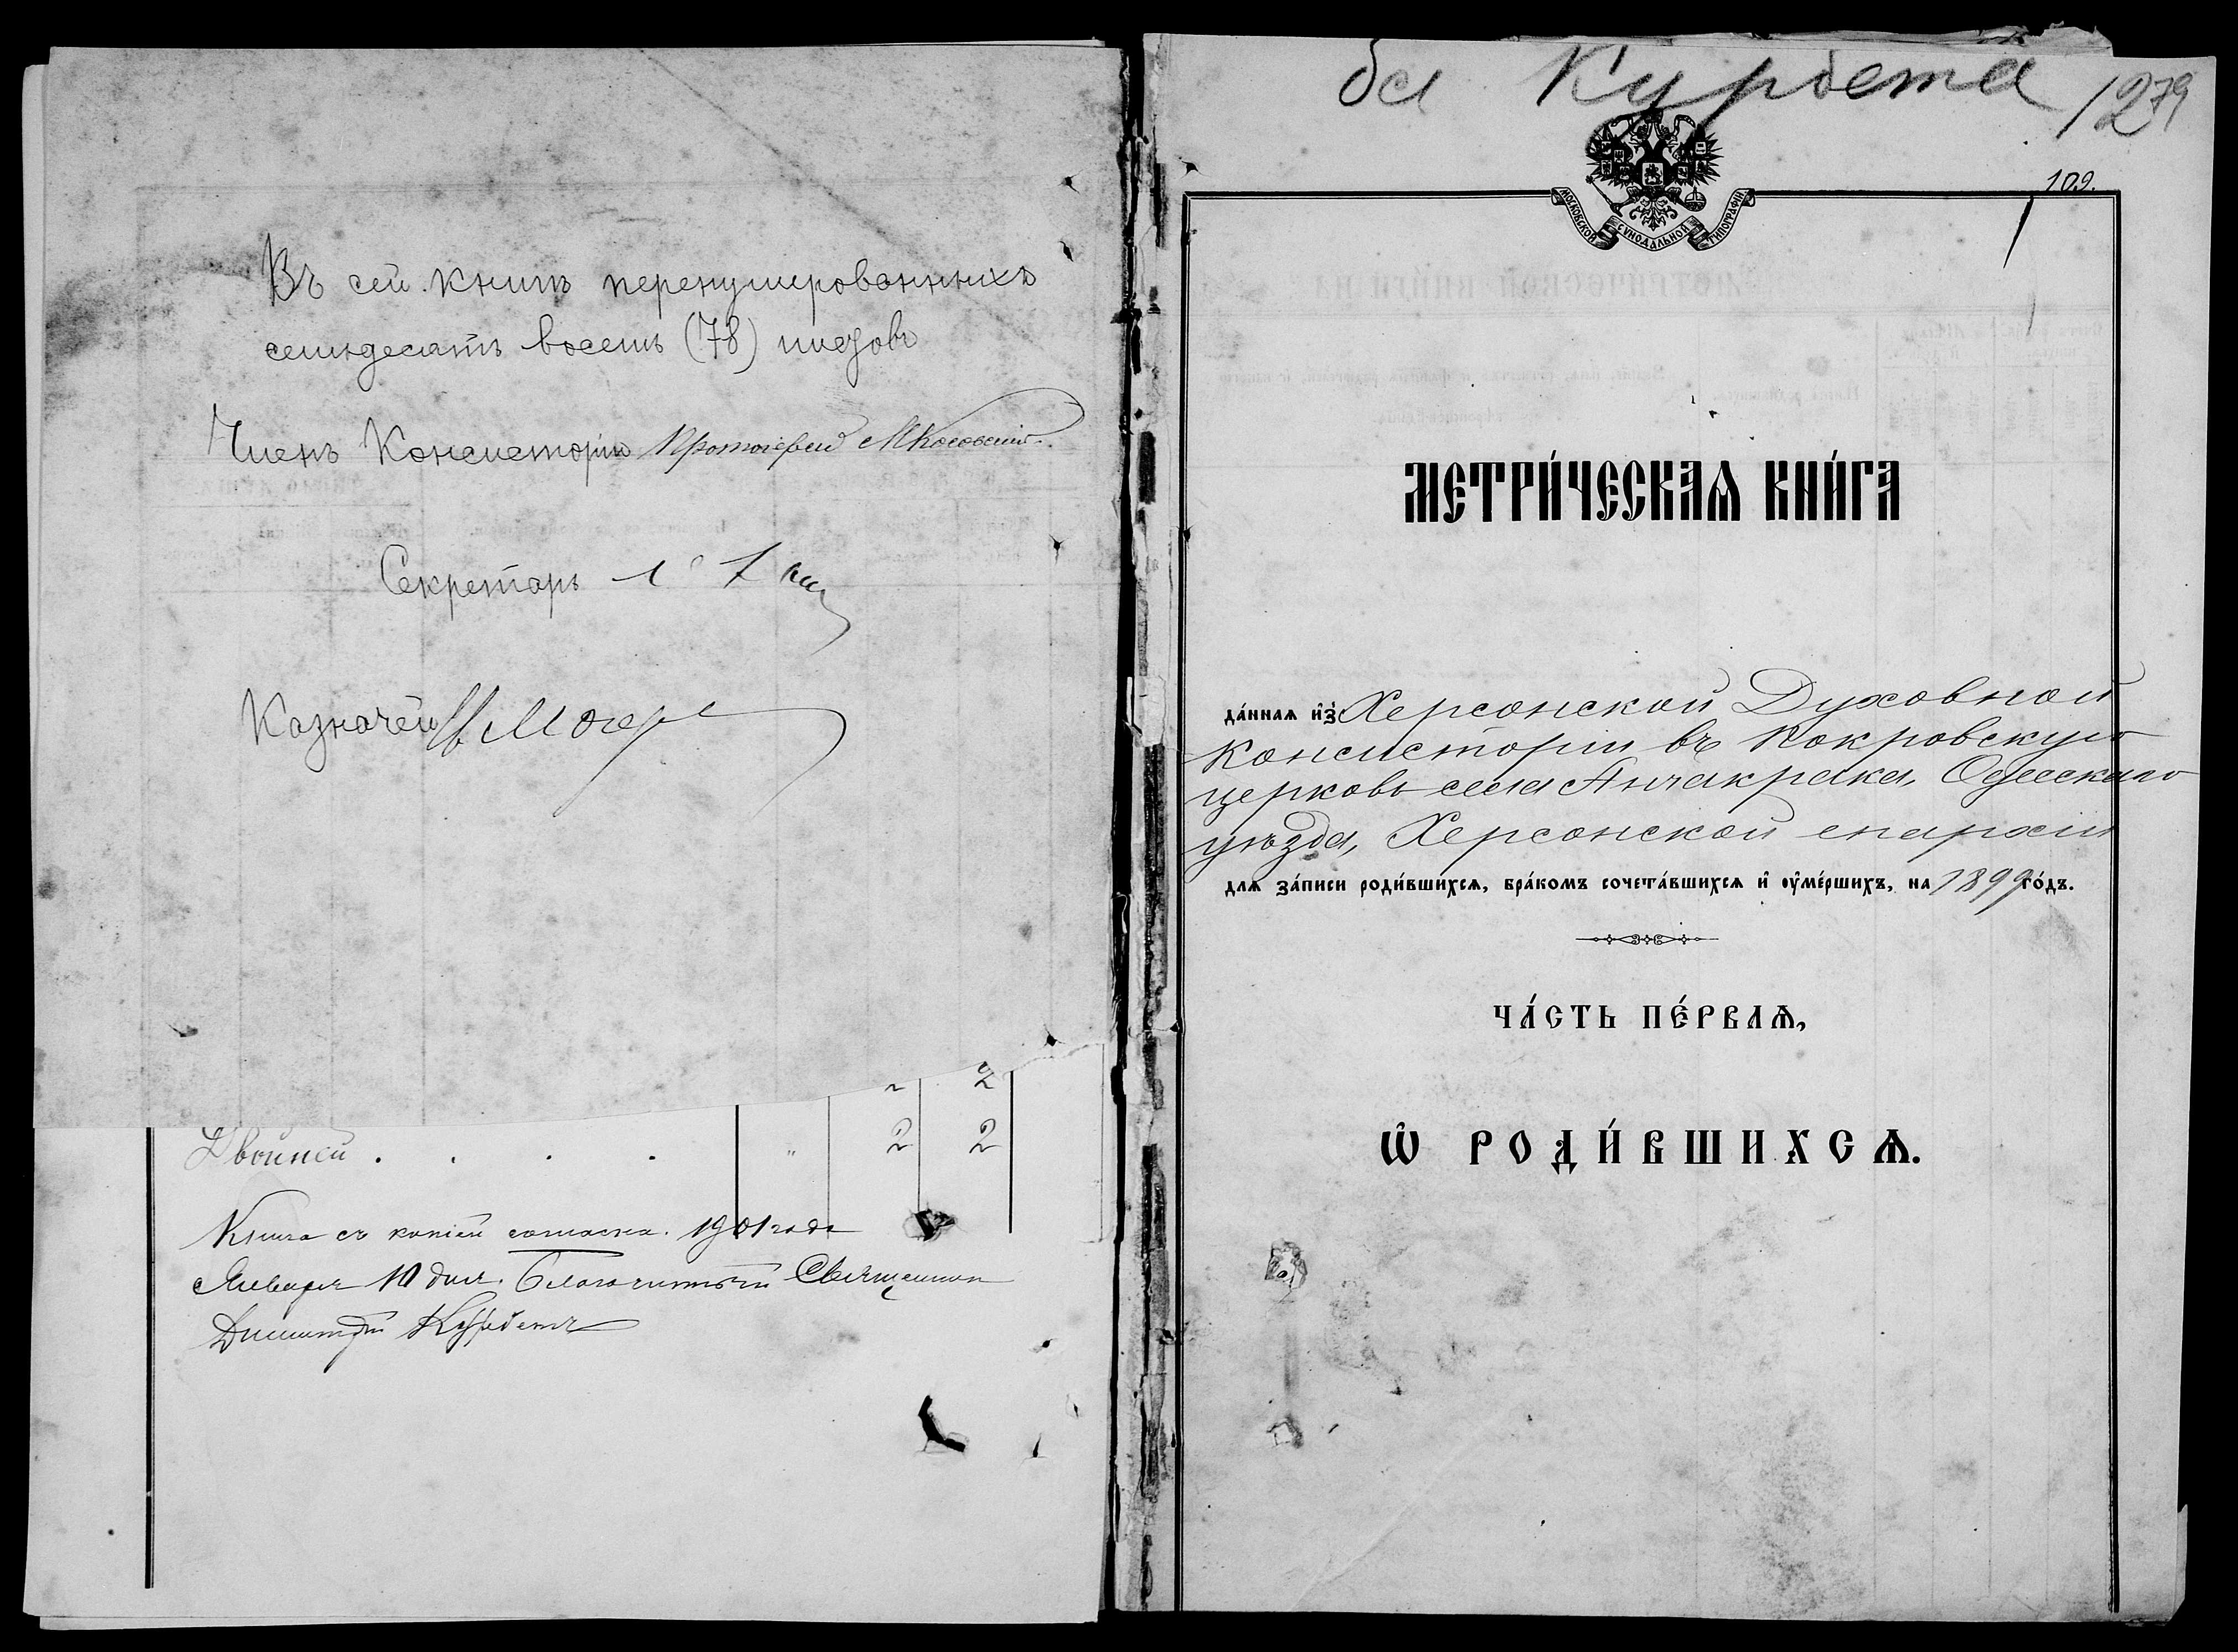 Въ сей книгѣ перенумерованныхъ
семьдесятъ восемь (78) листовъ
Членъ Консисторіи Протоіерей
Секретарь
Казначей
2
Двойней . . . . " 2 2
Книга съ копіей согласна. 1901 года
Января 10 дня. Благочинный Священник
Димитрій Курбетъ
бл Курбета 1279
109.
МОСКОВСКОЙ СѴНОДАЛЬНОЙ ТИПОГРАФІИ
МЕТРИ́ЧЕСКАѦ КНИ́ГА
да́ннаѧ и҆зъ Херсонской Духовной
Консисторіи въ Покровскую
церковь села Анчакрака, Одесскаго
уѣзда, Херсонской епархіи
длѧ за́писи роди́вшихсѧ, бра́комъ сочета́вшихсѧ и҆ оу҆ме́ршихъ, на 1899 го́дъ.
ЧА́СТЬ ПЕ́РВАѦ,
Ѡ҆ РОДИ́ВШИХСѦ.